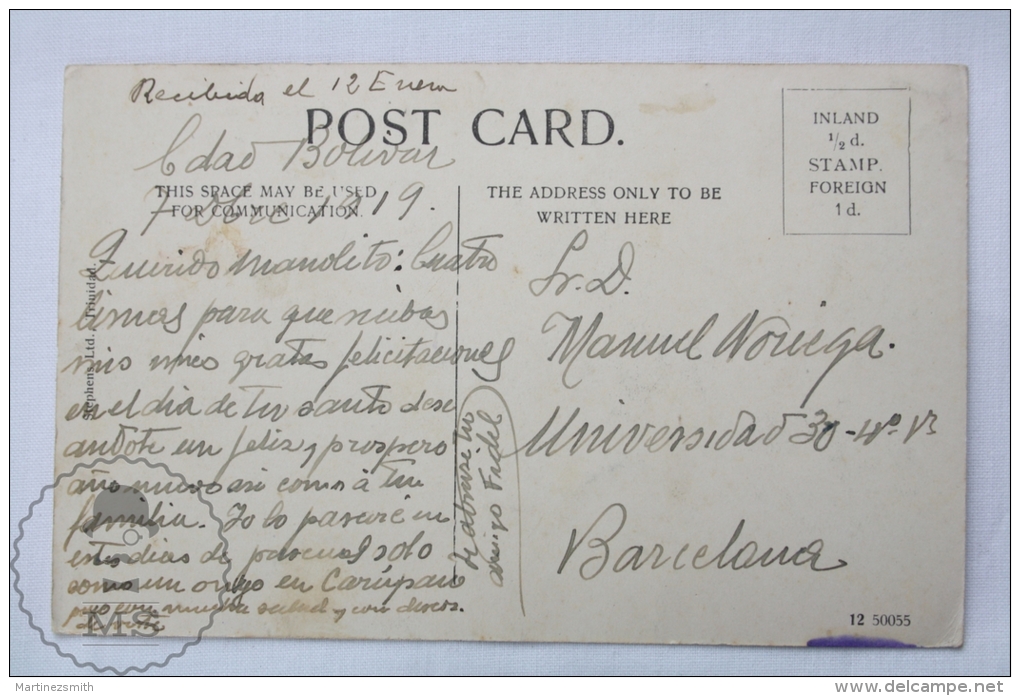 Recibida el 12 Enero
POST CARD.
Cdad Bolivar
7 Dbre 1919.
THIS SPACE MAY BE USED
FOR COMMUNICATION.
Querido Manolito: Cuatro
lineas para que recibas
mis mas gratas felicitaciones
en el dia de tu santo dese
andote un feliz y prospero
año nuevo asi como á tu
familia. Yo lo pasaré en
estos dias de pascuas solo
como un ongo en Carúpano
pero con mucha salud y con deseos.
de verte
tu
amigo Fidel
THE ADDRESS ONLY TO BE
WRITTEN HERE
INLAND
½ d.
STAMP.
FOREIGN
1 d.
Sr. D.
Manuel Noriega.
Universidad 30-4º-
Barcelona
Stephens, Ltd., Trinidad.
12 50055
MS
Martinezsmith
delcampe.net